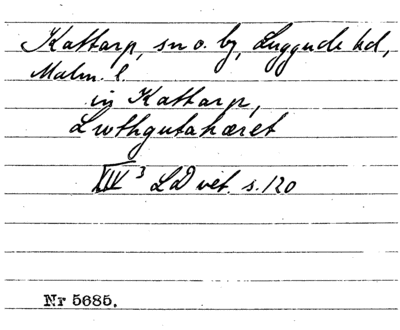 Kattarp, sn o. by, Luggude hd,
Malm. l.
in Kattarp,
Lwthgutahæret
XIV 3 LD vet. s. 120
Nr 5685.